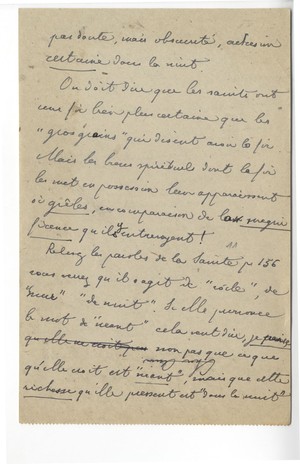 pas doute, mais obscurité, adhésion
certaine dans la nuit."
On doit dire que les saints ont
une foi bien plus certaine que les
"gros grains" qui disent avoir la foi
Mais les biens spirituels dont la foi
les met en possession leur apparaissent
si grêles, en comparaison de la magni
ficence qu'ils entrevoyent !
Relisez les paroles de la Sainte p 156
vous verrez qu'il s'agit de "voile", de
"mur" "de nuit". Si elle prononce
le mot de "néant" cela veut dire, je pense
non pas que ce que
qu'elle croit est "néant", mais que cette
richesse qu'elle pressent est "dans la nuit"